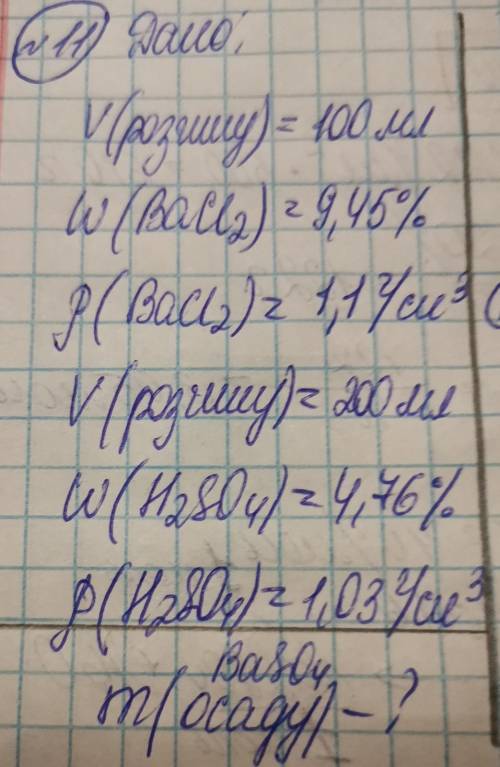 №11 Дано:
V(розчину) = 100 мл
W(BaCl₂) = 9,45%
ρ(BaCl₂) = 1,1 г/см³
V(розчину) = 200 мл
W(H₂SO₄) = 4,76%
ρ(H₂SO₄) = 1,03 г/см³
BaSO₄
m(осаду) - ?